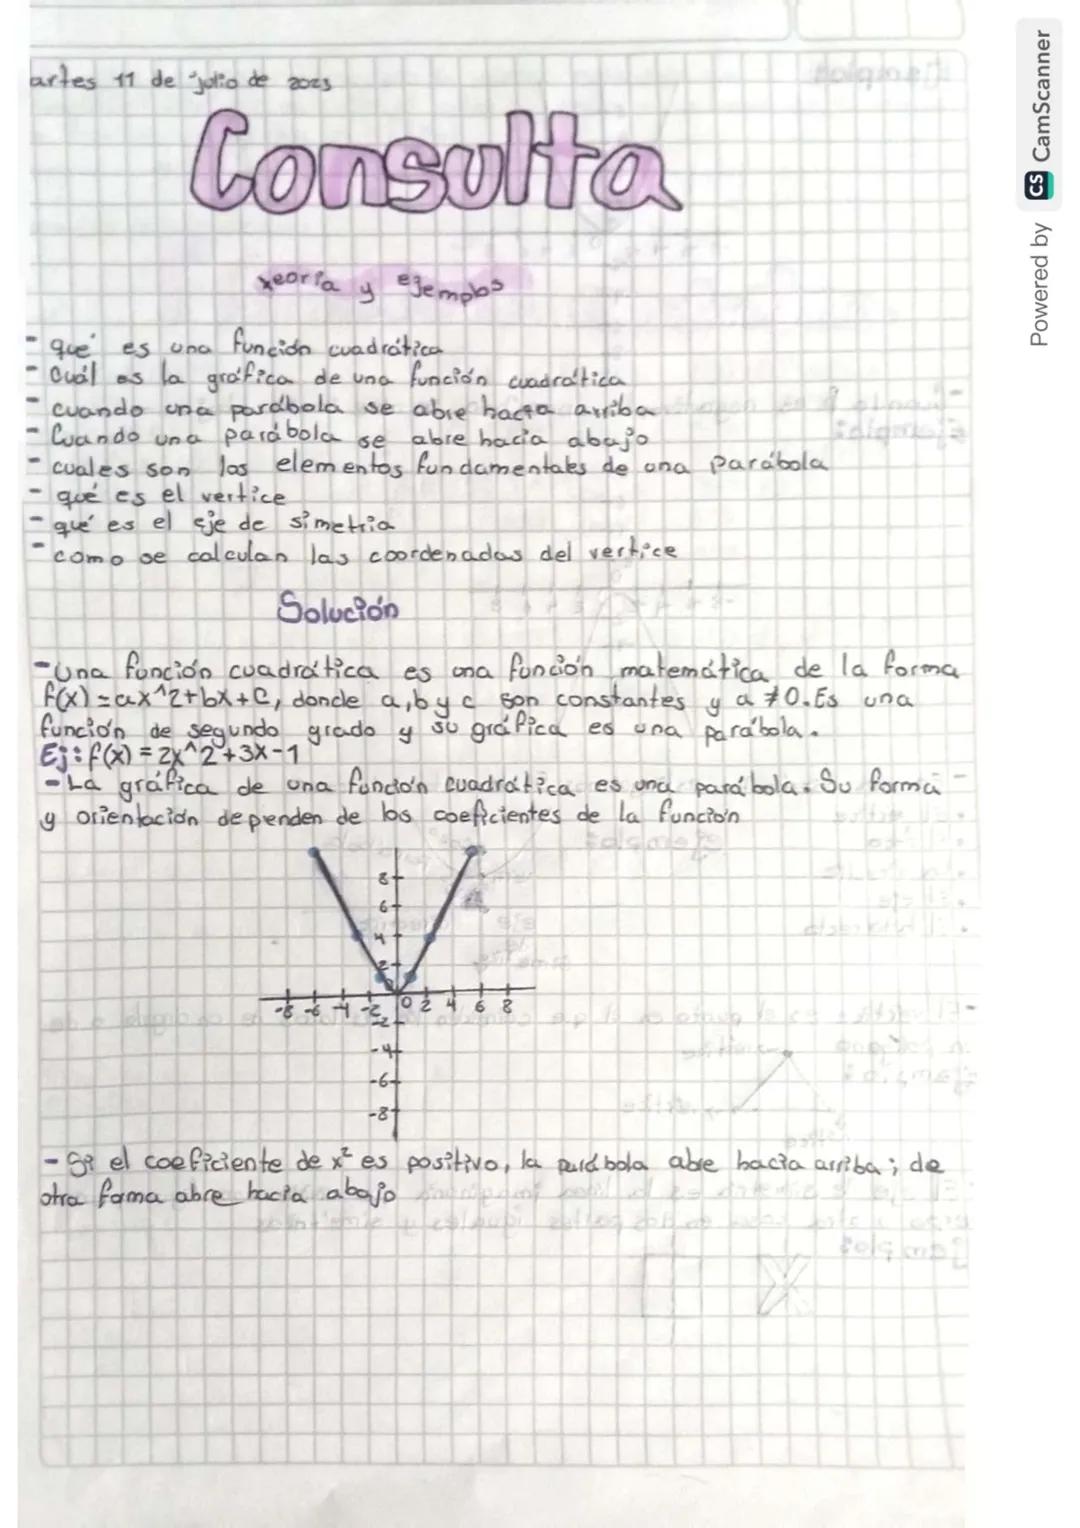 artes 11 de julio de 2023
Consulta
teoría y ejemplos
- qué es una función cuadrática
- Cuál es la gráfica de una función cuadrática
- cuando una parábola se abre hacia arriba
- Cuando una parábola se abre hacia abajo
- cuales son los elementos fundamentales de una parábola
- qué es el vertice
- qué es el eje de simetria
- como se calculan las coordenadas del vertice
Solución
- Una función cuadrática es una función matemática de la forma
f(x) = ax^2+bx+c, donde a, b y c son constantes y a ≠ 0. Es una
función de segundo grado y su gráfica es una parábola.
Ej: f(x) = 2x^2+3x-1
- La gráfica de una función cuadrática es una parábola. Su forma
y orientación dependen de los coeficientes de la función
8
6
4
2
-8 -6 -4 -2 0 2 4 6 8
-2
-4
-6
-8
- Si el coeficiente de x² es positivo, la parábola abre hacia arriba; de
otra forma abre hacia abajo
Powered by CS CamScanner